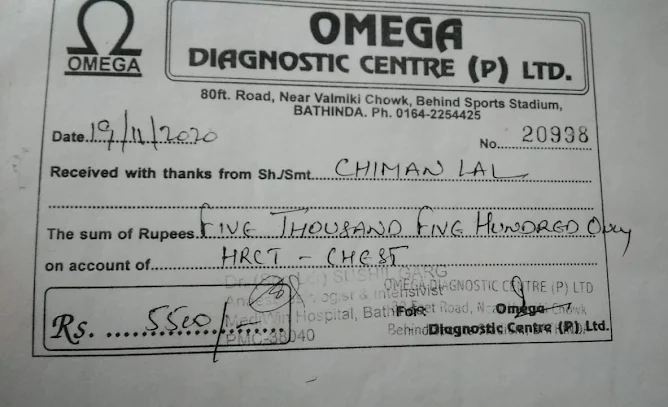 OMEGA
OMEGA
DIAGNOSTIC CENTRE (P) LTD.
80ft. Road, Near Valmiki Chowk, Behind Sports Stadium,
BATHINDA. Ph. 0164-2254425
Date 19/11/2020
No. 20998
Received with thanks from Sh./Smt. CHIMAN LAL
The sum of Rupees FIVE THOUSAND FIVE HUNDRED Only
on account of HRCT - CHEST
SUSHIL GARG
OMEGA DIAGNOSTIC CENTRE (P) LTD
& Intensivist
Hospital, Bathinda
Road,
Chowk
PMC-38040
Behind
Rs. 5500/-
For Omega
Diagnostic Centre (P) Ltd.